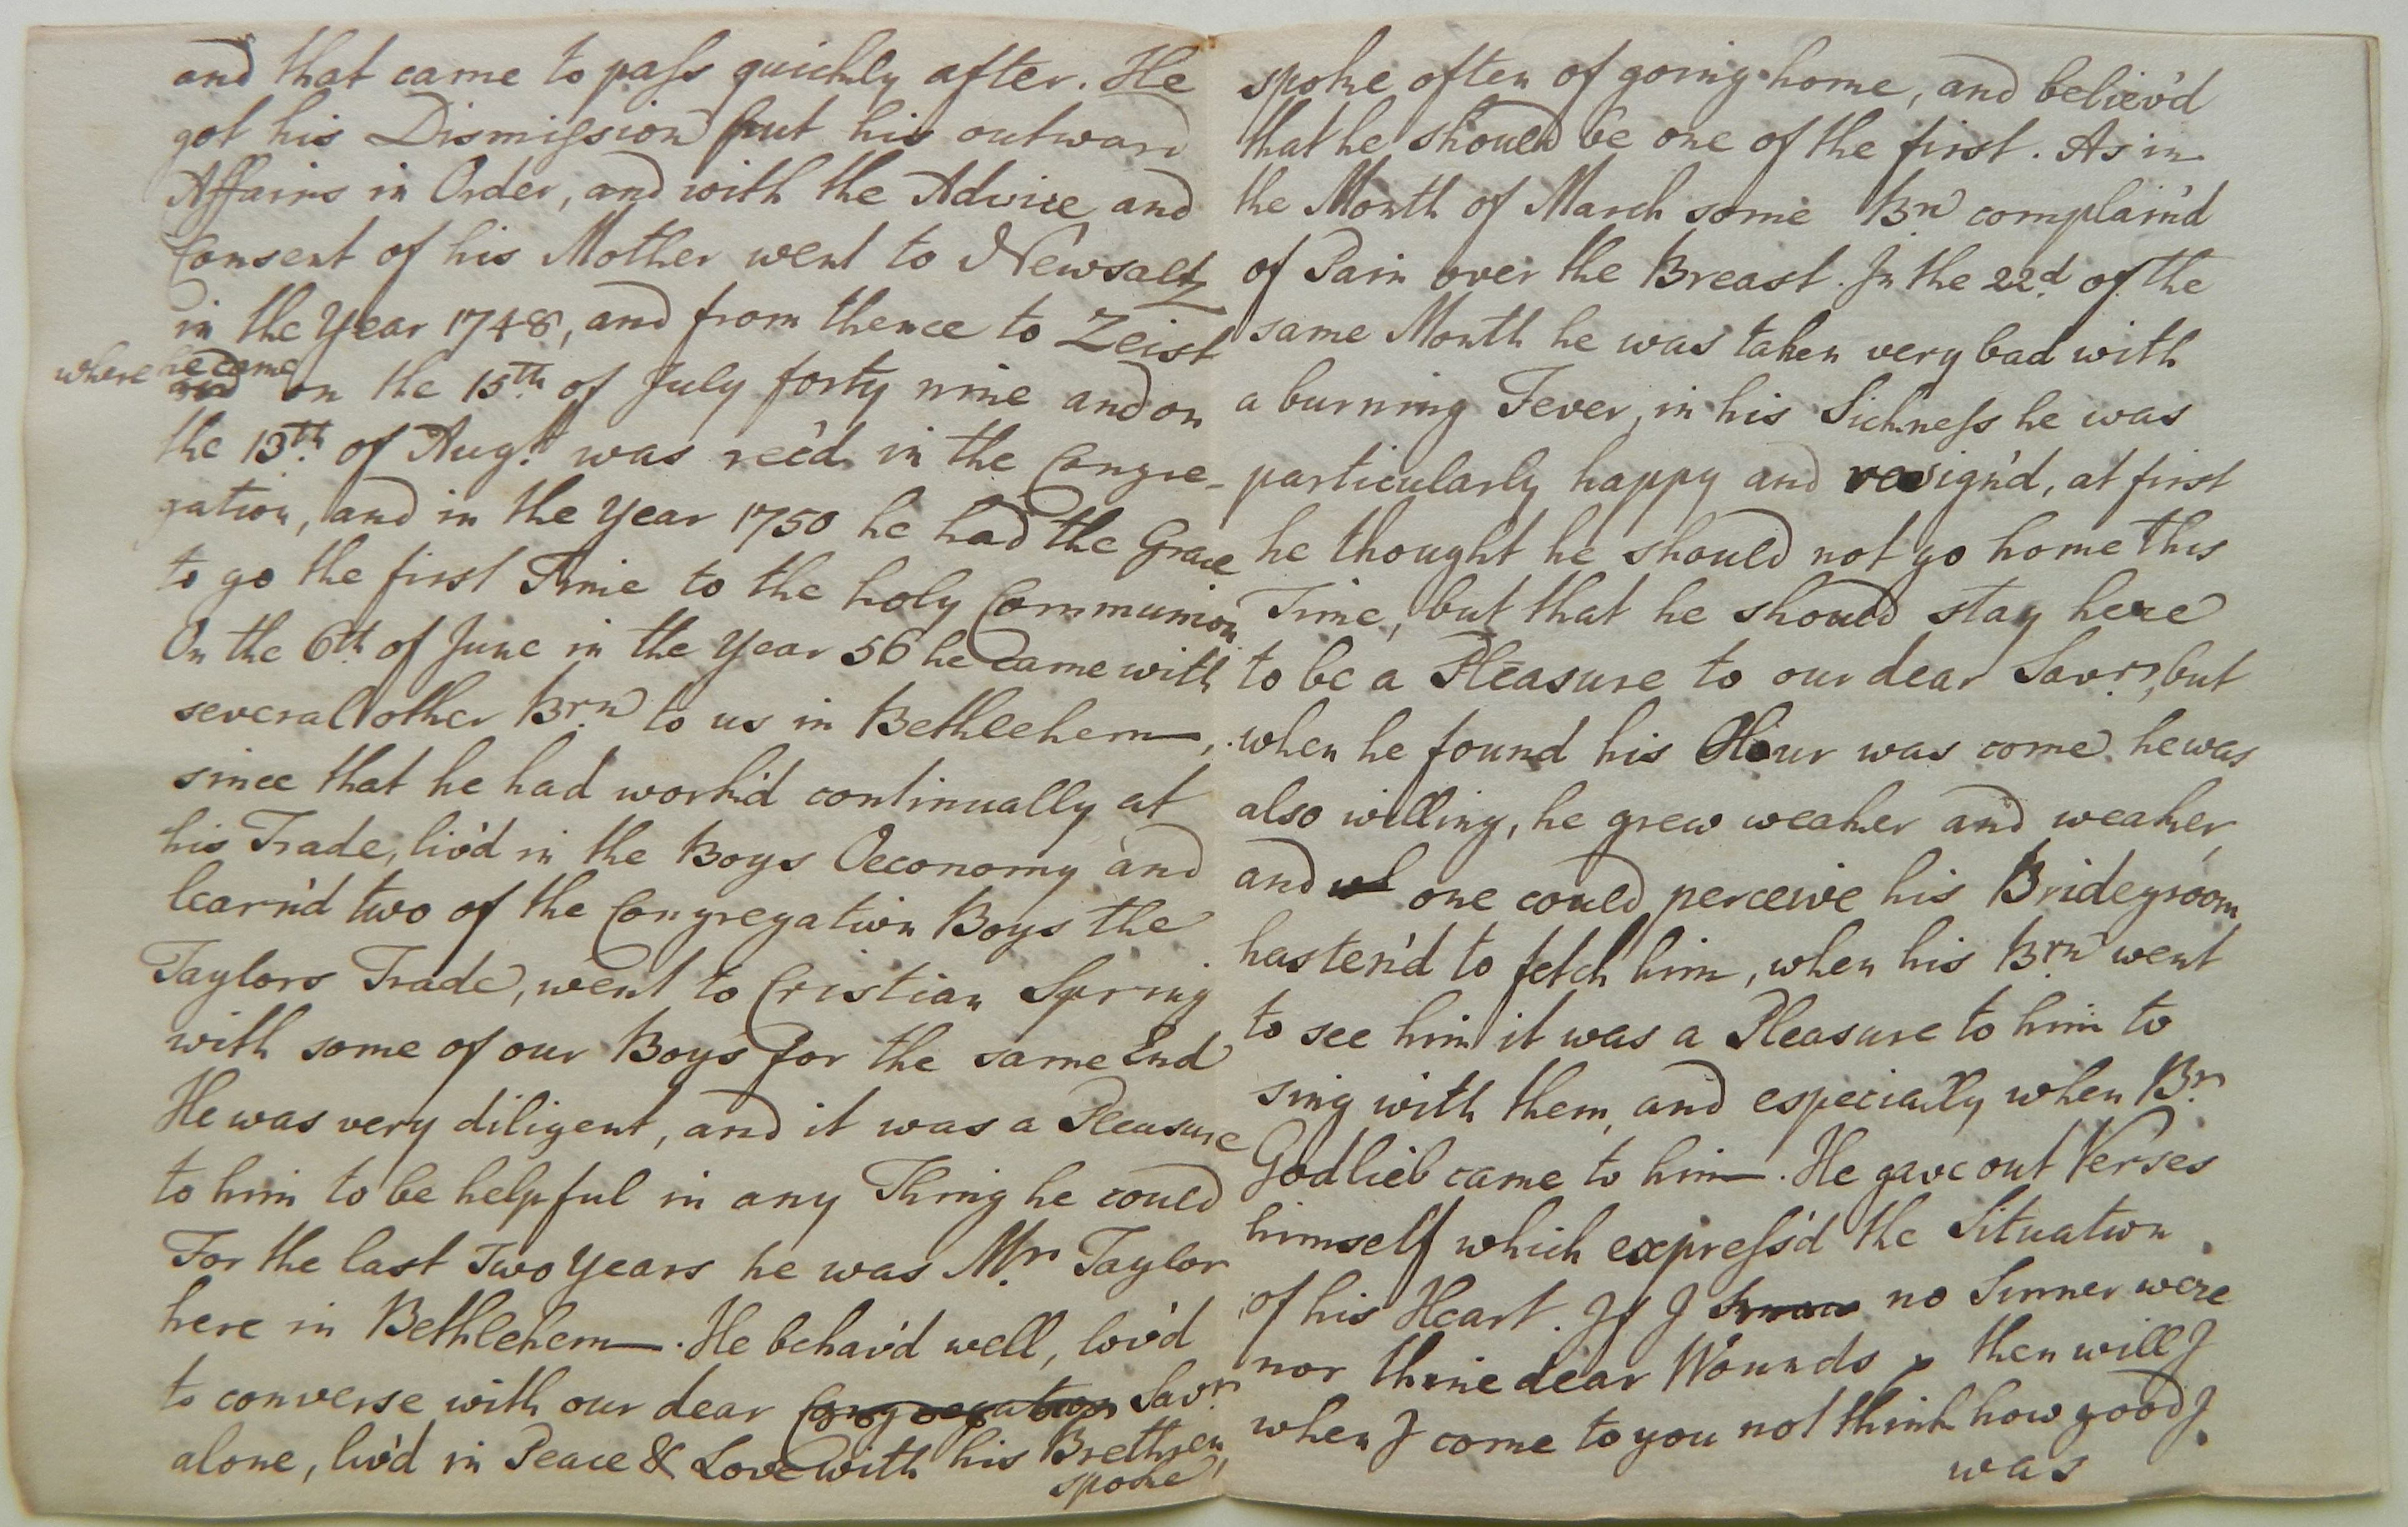 and that came to pass quickly after. He
got his Dismission put his outward
Affairs in Order, and with the Advice and
Consent of his Mother went to Newsaltz
in the Year 1748, and from thence to Zeist
where he came
and on the 15th of July forty nine and on
the 13th of Augt was rec'd in the Congre-
gation, and in the Year 1750 he had the Grace
to go the first Time to the holy Communion
On the 6th of June in the Year 56 he came with
several other Brn to us in Bethlehem,
since that he had work'd continually at
his Trade, liv'd in the Boys Oeconomy and
learn'd two of the Congregation Boys the
Taylors Trade, went to Cristian Spring
with some of our Boys for the same End
He was very diligent, and it was a Pleasure
to him to be helpful in any Thing he could
For the last Two Years he was Mr Taylor
here in Bethlehem. He behav'd well, lov'd
to converse with our dear Congregation Savr
alone, liv'd in Peace & Love with his Brethren,
spoke
spoke often of going home, and believ'd
that he should be one of the first. As in
the Month of March some Brn complain'd
of Pain over the Breast. In the 22d of the
same Month he was taken very bad with
a burning Fever, in his Sickness he was
particularly happy and resign'd, at first
he thought he should not go home this
Time, but that he should stay here
to be a Pleasure to our dear Savr, but
when he found his Hour was come he was
also willing, he grew weaker and weaker,
and wh one could perceive his Bridegroom
hasten'd to fetch him, when his Brn went
to see him it was a Pleasure to him to
sing with them, and especially when Br
Godlieb came to him. He gave out Verses
himself which express'd the Situation
of his Heart. If I no Sinner were
nor thine dear Wounds then will I
when I come to you not think how good I
was